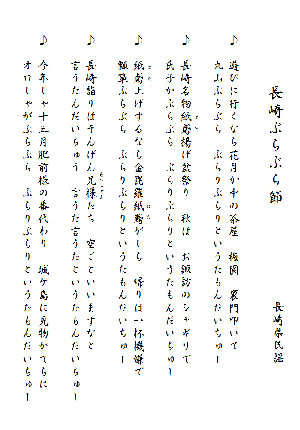 長崎ぶらぶら節
長崎県民謡
♪ 遊びに行くなら花月か中の茶屋 梅園 裏門叩いて
丸山ぶらぶら ぶらりぶらりというたもんだいちゅー
♪ 長崎名物紙鳶揚げ盆祭り 秋は お諏訪のシャギリで
氏子がぶらぶら ぶらりぶらりというたもんだいちゅー
♪ 紙鳶上げするなら金毘羅 帰りは一杯機嫌で
瓢箪ぶらぶら ぶらりぶらりというたもんだいちゅー
♪ 長崎詣りはそんげん兄様たち 空ごといいますなと
言うたんだいちゅう 言うた言うたというたもんだいちゅー
♪ 今年ゃ十三月肥前様の番代わり 城ヶ島に見物がてらに
オロシャがぶらぶら ぶらりぶらりというたもんだいちゅー